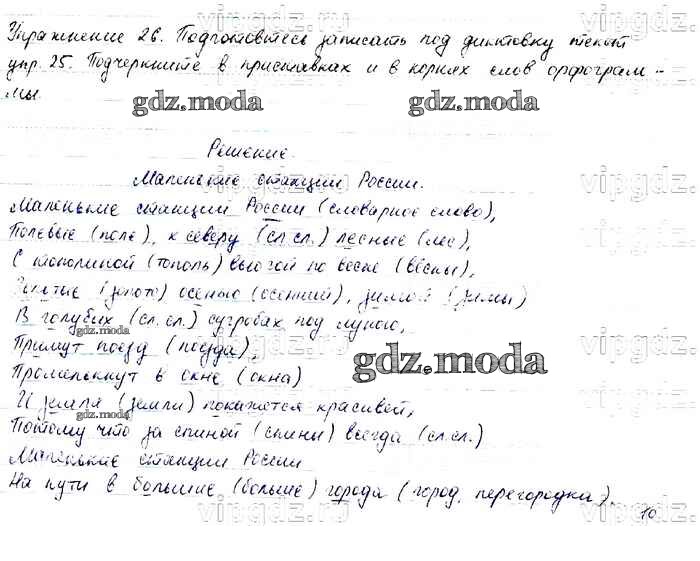 Упражнение 26. Подготовьтесь записать под диктовку текст
упр. 25. Подчеркните в приставках и в корнях слов орфограм-
мы.
gdz.moda
gdz.moda
Решение.
Маленькие станции России.
Маленькие станции России (словарное слово),
Полевые (поле), к северу (сл. сл.) лесные (лес),
С тополиной (тополь) вьюгой по весне (вёсны),
Золотые (золото) осенью (осенний), зимой (зимы)
В голубых (сл. сл.) сугробах под луною,
gdz.moda
Примут поезд (поезда),
gdz.moda
Промелькнут в окне (окна)
И земля (земли) покажется красивей,
gdz.moda
Потому что за спиной (спины) всегда (сл. сл.)
Маленькие станции России
На пути в большие (большие) города (город, перегородка).
10
vipgdz.ru
vipgdz.ru
vipgdz.ru
vipgdz.ru
vipgdz.ru
vipgdz.ru